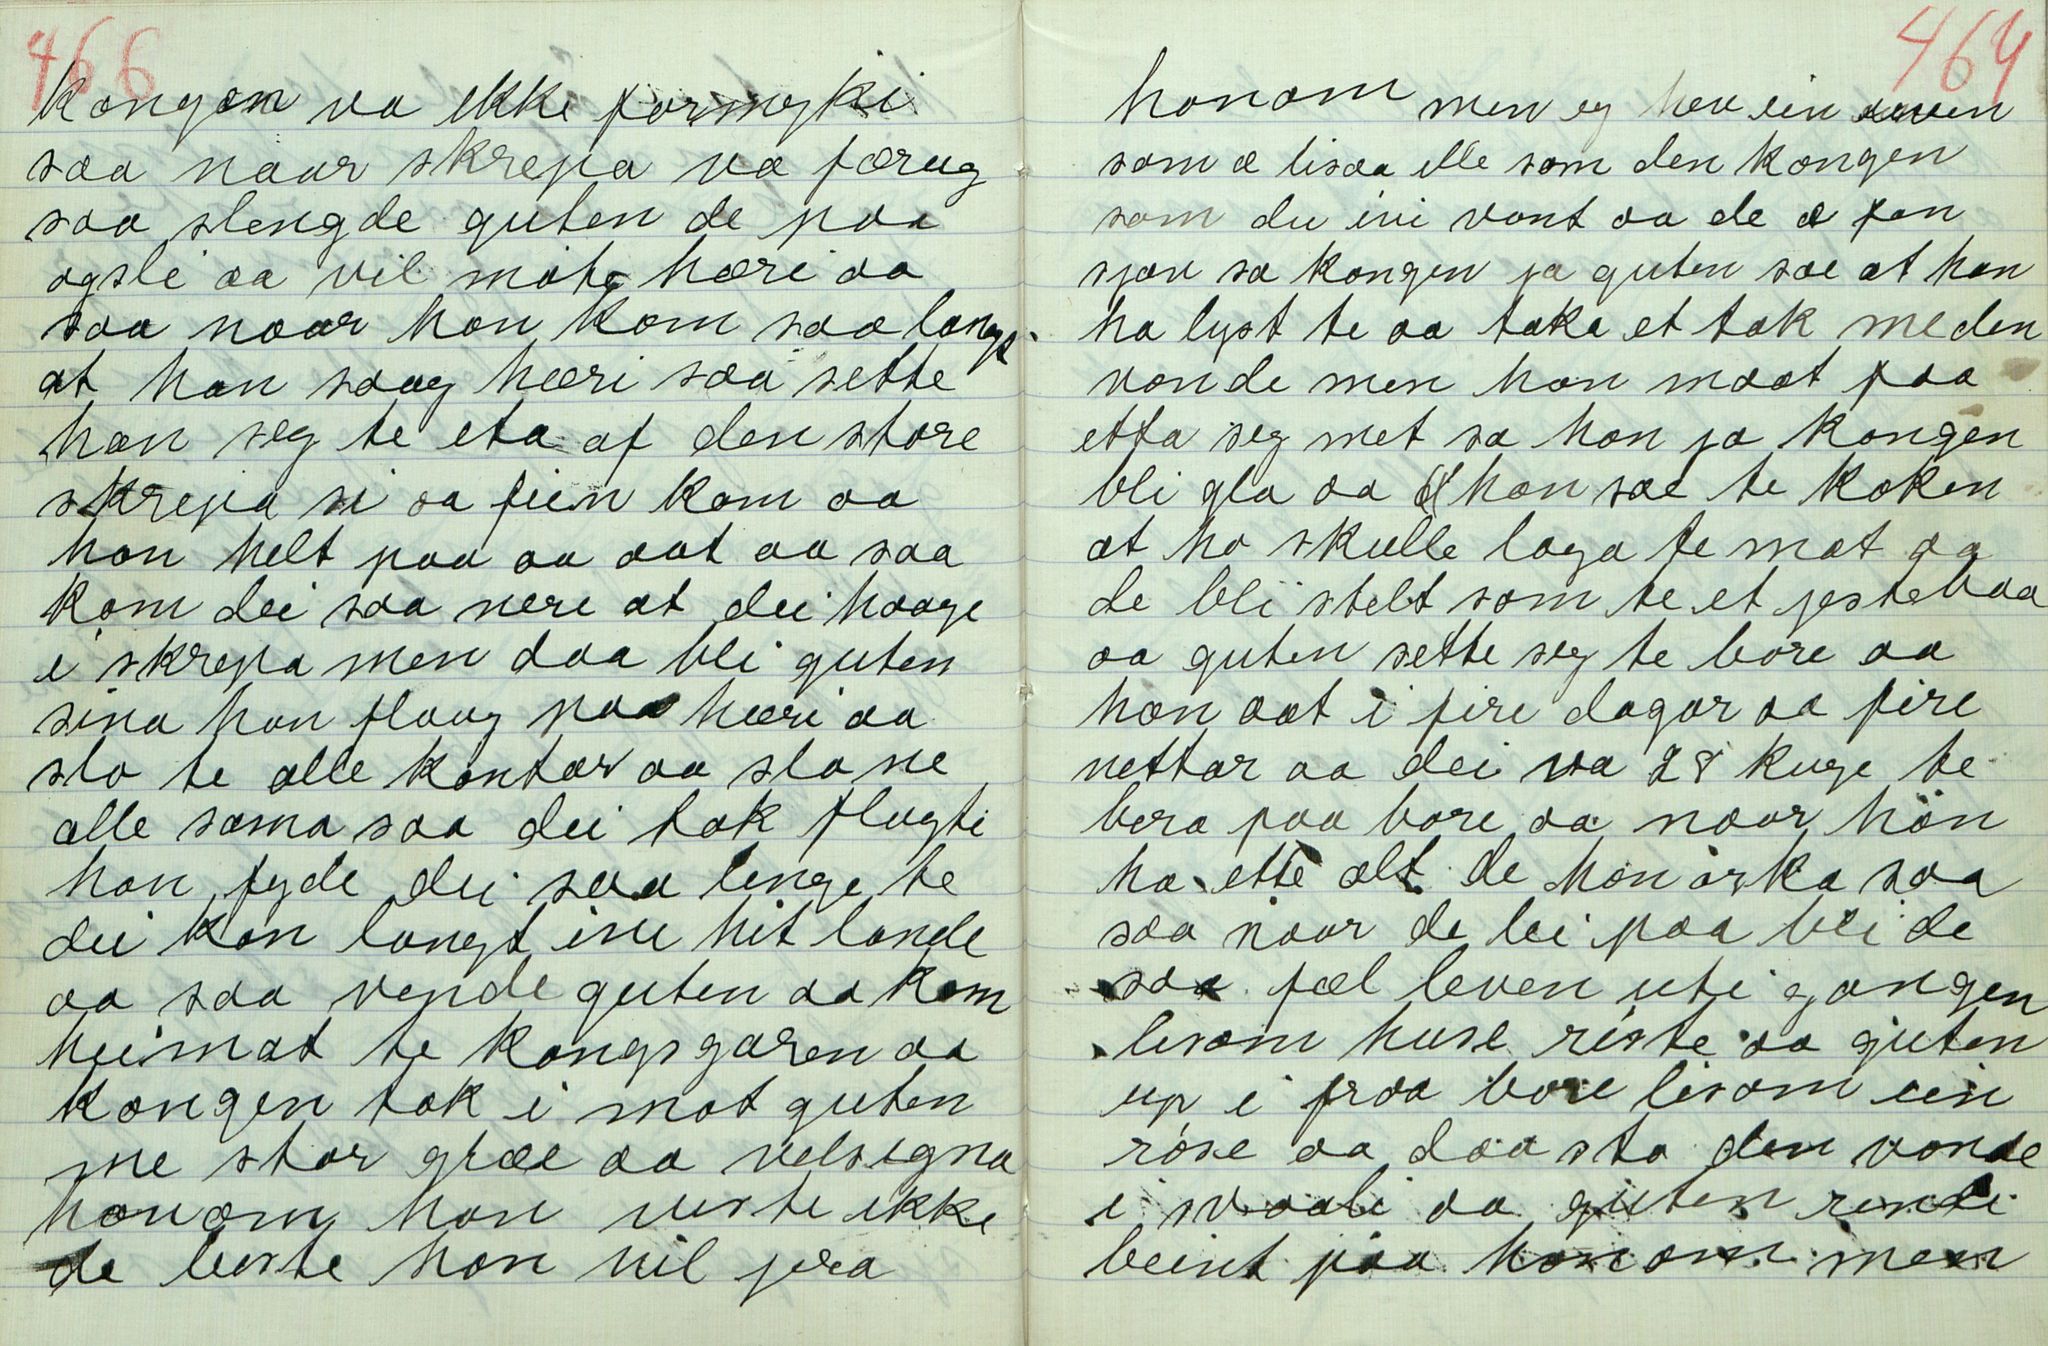 466
kongen va ikke formyki
saa naar skrepa va færug
saa slengde guten de paa
ogsli aa vil mote hæri aa
saa naar han kom saa langt
at han saag hæri saa sette
han seg te eta af den store
skrepa si sa fein kom aa
han helt paa aa aat aa saa
kom dei saa nere at dei haage
i skrepa men daa blei guten
sina han flaug paa hæri aa
slo te alle kantar aa slo ne
alle sama saa dei tok flugti
han fyde dei saa lenge te
dei kon langt ini hit lande
aa saa vende guten aa kom
heimat te kongsgaren aa
kongen tok i mot guten
me stor græe aa velsegna
honom han viste ikke
de beste han vil jera
464
honom men eg hev ein uven
som æ lisaa ille som den kongen
som du ini vant aa de æ fan
sjøv sa kongen ja guten sae at han
ha lyst te aa taka et tak me den
vonde men han maat faa
etta seg met sa han ja kongen
bli gla aa han sae te koken
at ho skulle laga te mat aa
de bli stelt som te et jestebaa
aa guten sette seg te bore aa
han aat i fire dagar aa fire
nettar aa dei va 28 kuge te
bera paa bore aa naar hán
ha ette alt de han orka saa
saa naar de lei paa blei de
saa fæl leven uti gangen
lisom huse riste aa guten
up i fraa bore lisom ein
rose aa daa sto den vonde
i svaali aa guten rende
beint paa honom men